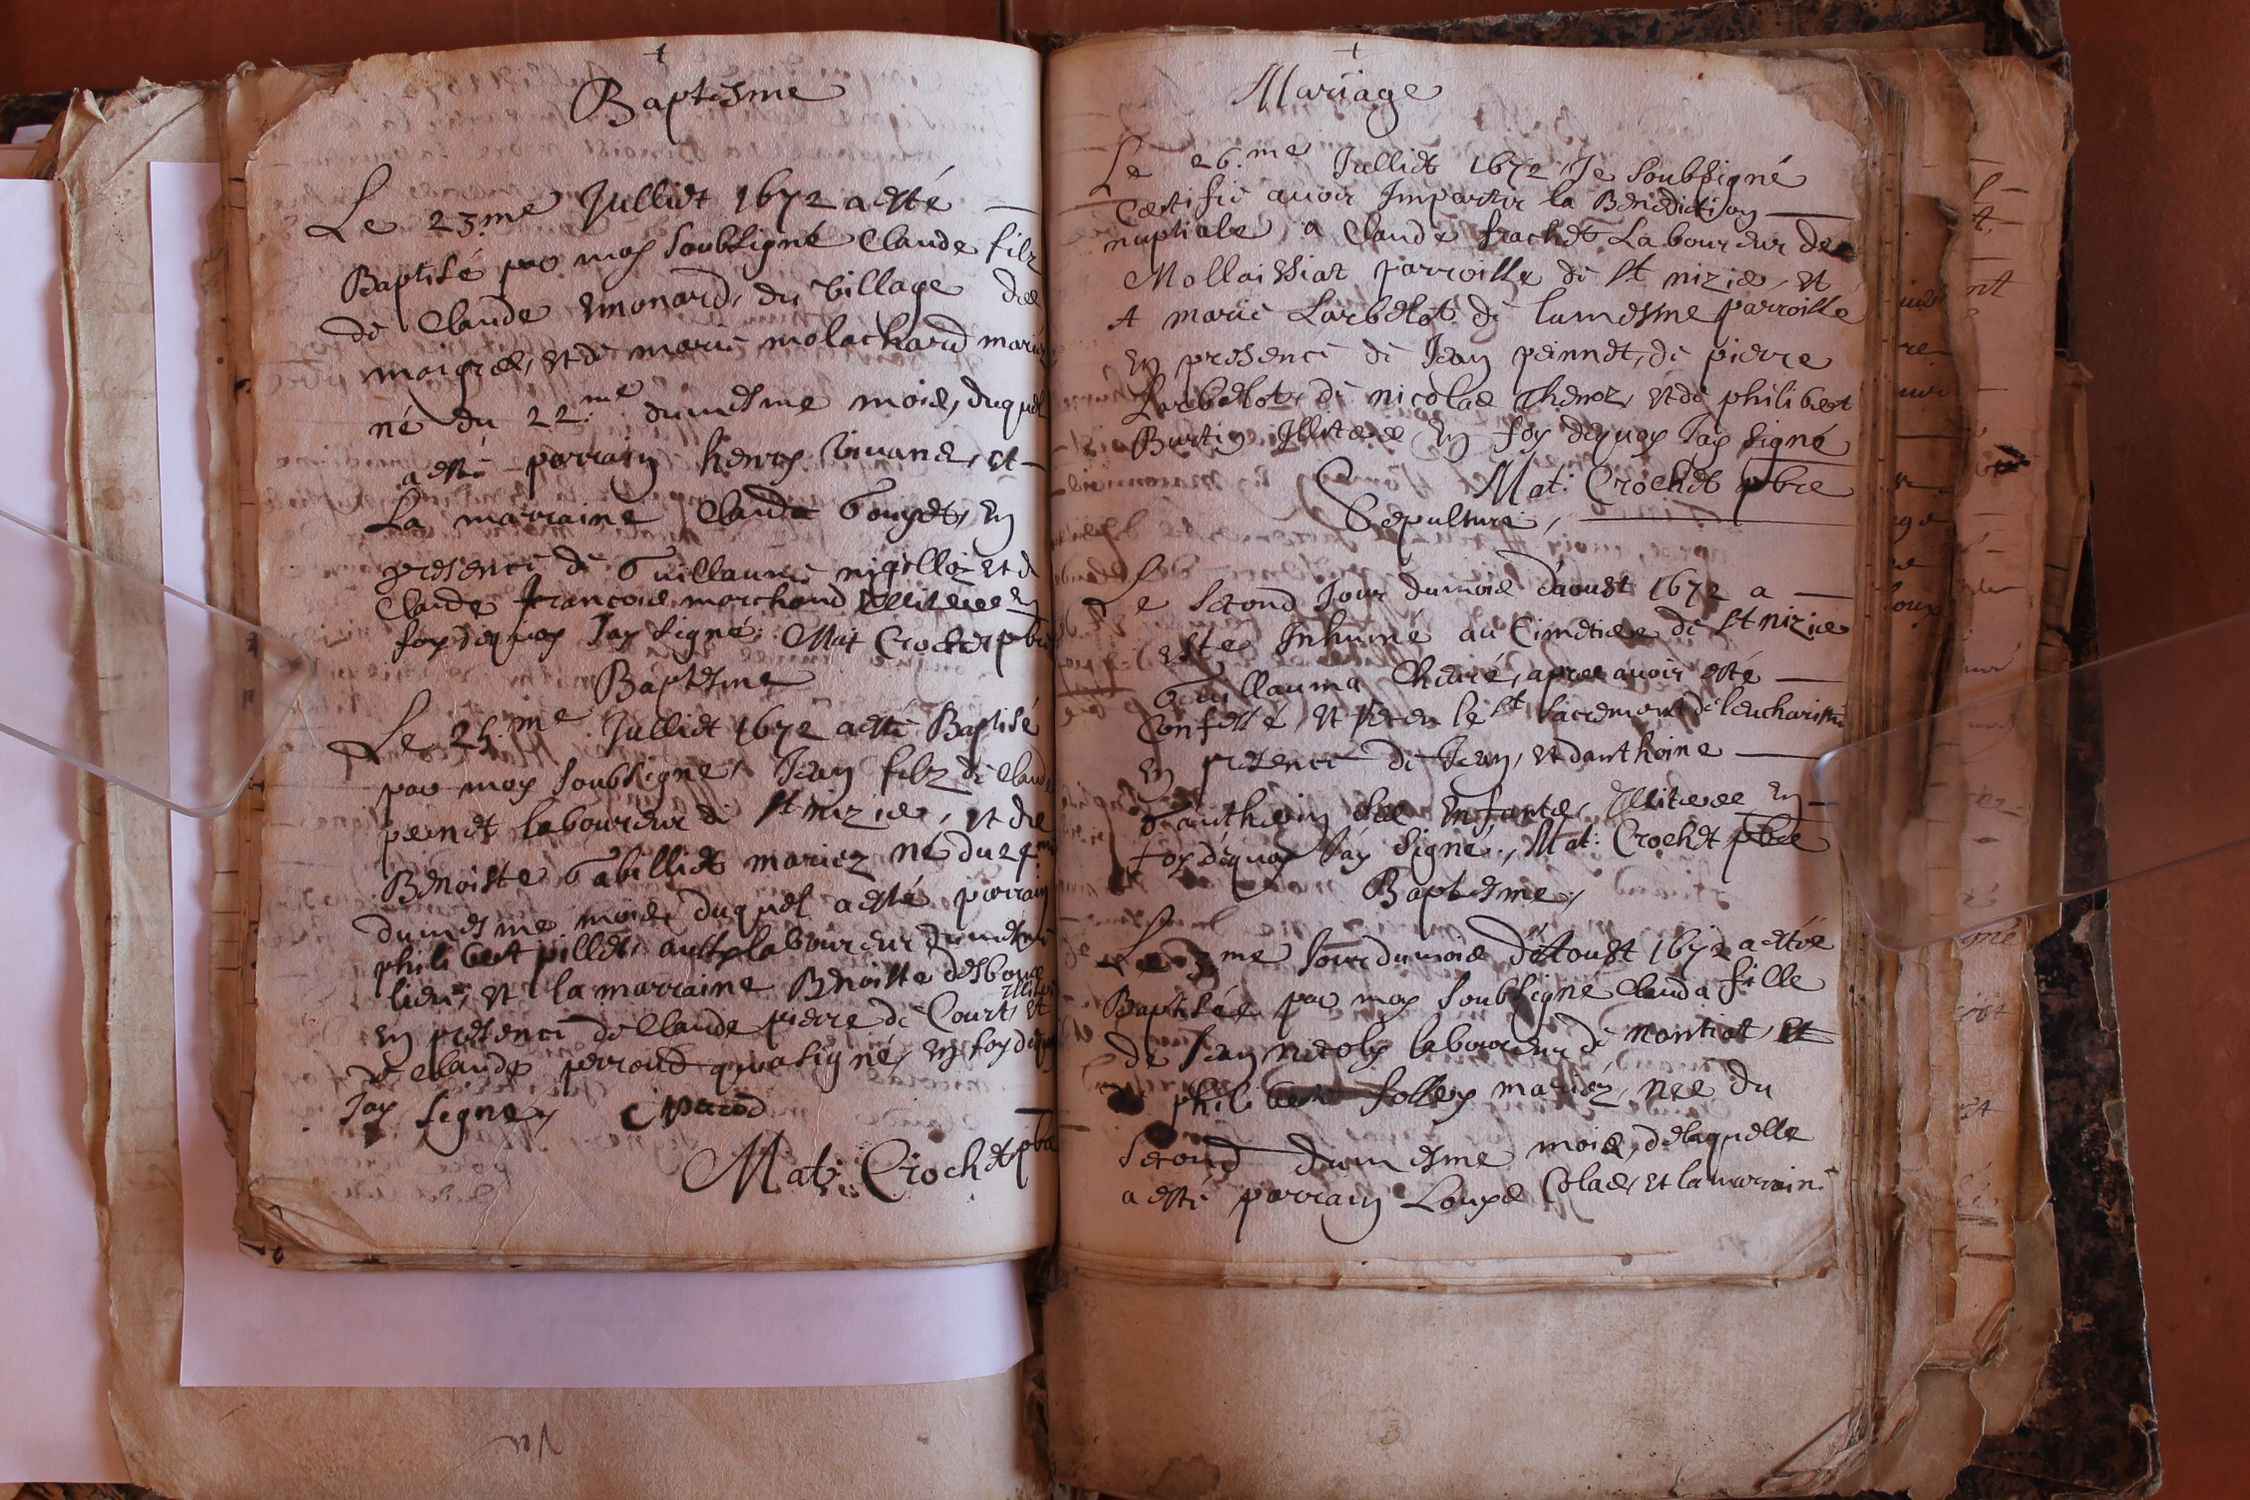 Baptesme
Le 23.me Julliet 1672 a esté
Baptisé par moy soubsigné Claude filz
de Claude Emonard, du village des
moigres, et de marie molachard mariéz
né du 22.me dumesme mois, duquel
a esté parrain henry vivand, et
La marraine Claude Gouyet, en
presence de Guillaume et de
Claude francois marchand Illiteres en
foy dequoy Jay signé. Mat Crochet pbre
Baptesme
Le 25.me Julliet 1672 a esté Baptisé
par moy soubsigné, Jean filz de Claude
peinet laboureur de St nizier, et de
Benoiste Gabilliet mariez né du 24.me
dumesme mois duquel a esté parrain
philibert pillet, aussy laboureur dumesme
lieu, et la marraine Benoiste desbois
Illiteres
en presence de Claude pierre de Court, et
de Claude perroud qui a signé, en foy dequoy
Jay signé, Cperrod
Mat. Crochet pbre
Mariage
Le 26.me Julliet 1672 Je soubsigné
Certifie avoir Imparti la Benediction
nuptiale a Claude frachet Laboureur de
Mollaissiat parroisse de St nizier, et
A marie Larbetot de lamesme parroisse
en presence de Jean peinnet, de pierre
Larbetot, de nicolas Thenoz, et de philibert
Burtin Illiteres En foy dequoy Jay signé
Mat. Crochet pbre
Sepulture,
Le second Jour dumois daoust 1672 a
esté Inhumé au Cimetiere de St nizier
Guillauma Chicré, apres avoir esté
Confessé, et receu le St sacrement de leucharistie
en presence de Jean, et danthoine
Gauthein ses enfants, Illiteres en
foy dequoy Jay signé, Mat. Crochet pbre
Baptesme,
Le 3.me Jour dumois d'Aoust 1672 a estée
Baptisée par moy soubsigné Clauda fille
de Jean nicoly laboureur de montiat et
philiberte follery mariéz, née du
second dumesme mois, de laquelle
a esté parrain Louys Colas, et la marraine